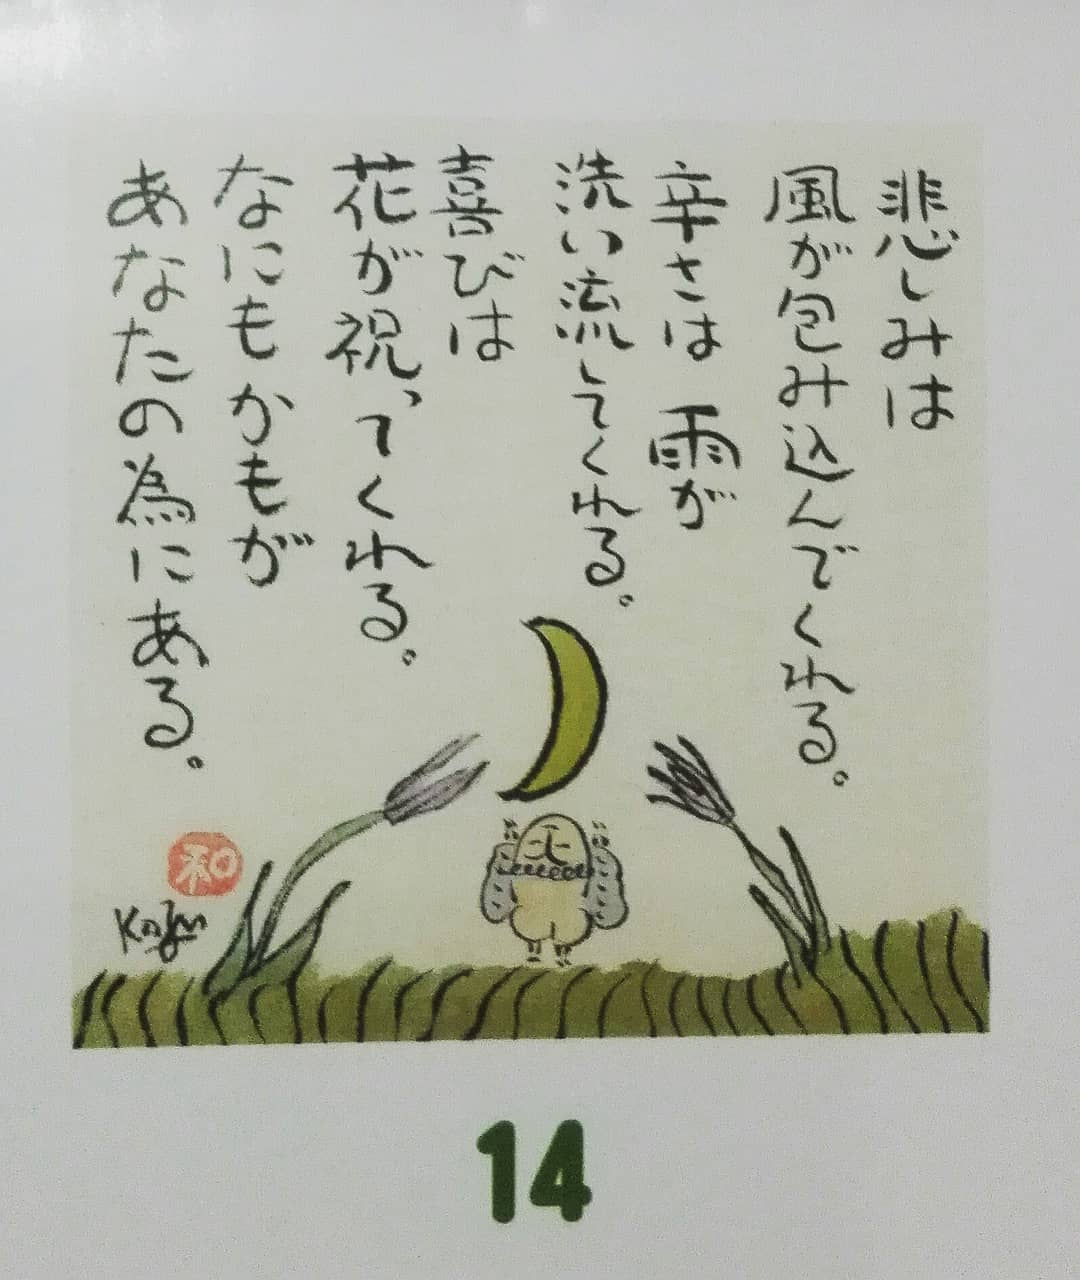 悲しみは
風が包み込んでくれる。
辛さは 雨が
洗い流してくれる。
喜びは
花が祝ってくれる。
なにもかもが
あなたの為にある。
和
14